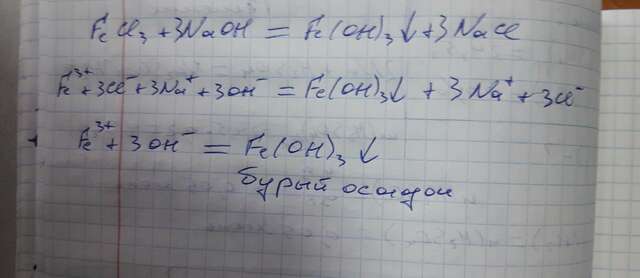 FeCl₃ + 3NaOH = Fe(OH)₃↓ + 3NaCl
Fe³⁺ + 3Cl⁻ + 3Na⁺ + 3OH⁻ = Fe(OH)₃↓ + 3Na⁺ + 3Cl⁻
Fe³⁺ + 3OH⁻ = Fe(OH)₃↓
бурый осадок